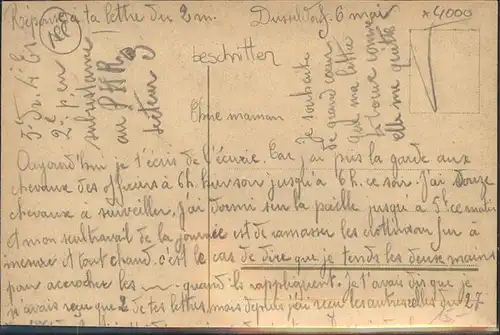 Réponse à ta lettre du 2 m.
Dusseldorf. 6 mai
x4000
beschritten
2e pen
subsistance
au PHR
secteur
Je souhaite
de grand coeur
que ma lettre
te trouve comme
elle me quitte
Chère maman
Aujourd'hui je t'écris de l'écurie. Car j'ai pris la garde aux
chevaux des officiers à 6h. hier soir jusqu'à 6h. ce soir. J'ai douze
chevaux à surveiller, j'ai dormi sur la paille jusqu'à 5h ce matin
et mon seul travail de la journée est de ramasser les crottins au fur à
mesure et tout chaud. c'est le cas de dire que je tends les deux mains
pour accrocher les quand ils rappliquent. Je t'avais dit que je
n'avais reçu que 2 de tes lettres mais depuis j'ai reçu les autres celles du 27